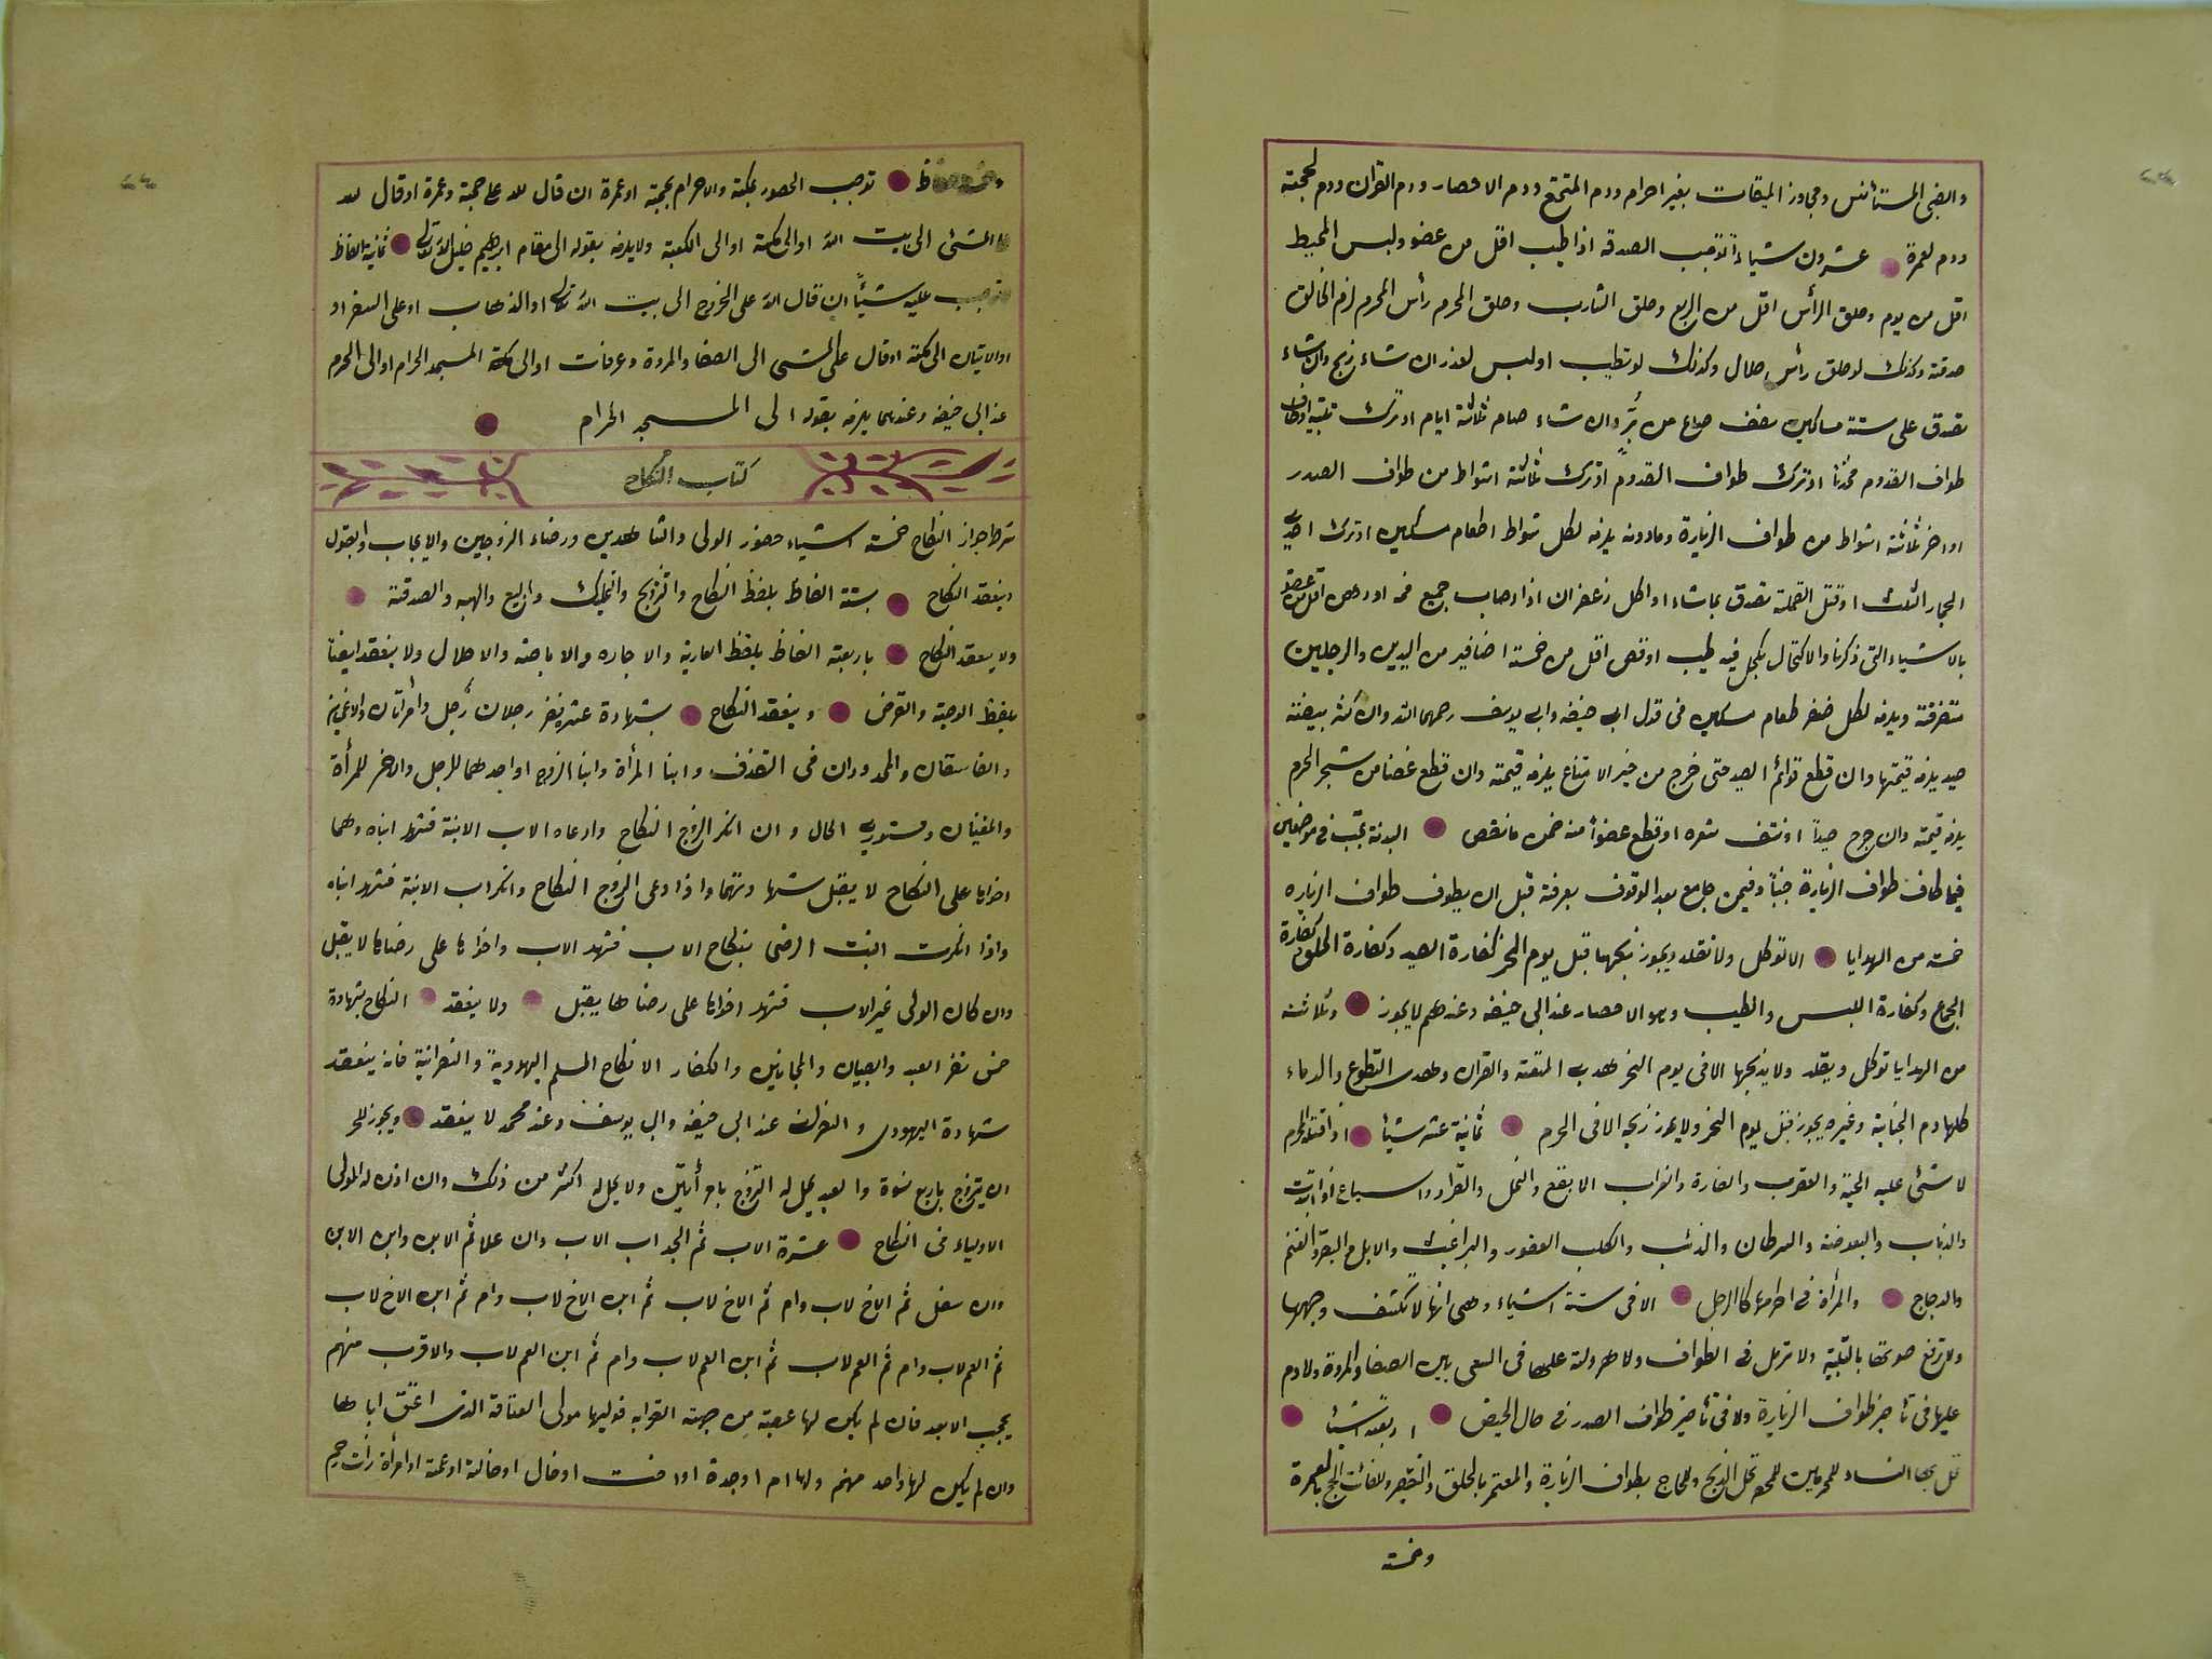 والضبى المستأنس ومجاوز الميقات بغير احرام ودم المتمتع ودم الاحصار ودم القران ودم لحجته
ودم لعمرة عشرون شيأ توجب الصدقه اذا طيب اقل من عضو ولبس المخيط
اقل من يوم وحلق الرأس اقل من الربع وحلق الشارب وحلق المحرم رأس المحرم لزم الحالق
صدقة وكذلك لو حلق رأس حلال وكذلك لو تطيب او لبس لعذر ان شاء ذبح وان شاء
تصدق على ستة مساكين نصف صاع من بر وان شاء صام ثلاثة ايام او ترك
طواف القدوم محدثا او ترك طواف القدوم او ترك ثلاثة اشواط من طواف الصدر
او اخر ثلاثة اشواط من طواف الزيارة ومادونه يلزمه لكل شواط اطعام مسكين او ترك احدى
الجمار الثلث او قتل القملة تصدق بماشاء او اكل زعفران اذا اصاب جميع فمه او دهن اقل من عضو
بالاشياء التى ذكرنا والاكتحال بكحل فيه طيب او قص اقل من خمسة اضافير من اليدين والرجلين
متفرقة ويلزمه لكل ضفر طعام مسكين فى قول ابى حنيفه وابى يوسف رحمهما الله وان كسر بيضة
صيد يلزمه قيمتها وان قطع قوائم الصيد حتى خرج من خير الامتناع يلزمه قيمته وان قطع غضنا من شجر الحرم
يلزمه قيمته وان جرح صيدا او نتف شعره او قطع عضوا منه ضمن مانقص البدنه تجب فى موضعين
فيما طاف طواف الزيارة جنبا وفيمن جامع بعد الوقوف بعرفة قبل ان يطوف طواف الزياره
خمسة من الهدايا لا توكل ولا تقلد ويجوز ذبحها قبل يوم النحر كفارة الصيد وكفارة الحلق وكفارة
الجماع وكفارة اللبس والطيب وهو الاحصار عند ابى حنيفه وعندهم لايجوز وثلاثة
من الهدايا توكل ويقلد ولا يذبحها الا فى يوم النحر هدى المتعة والقران وهدى التطوع والدماء
كلها دم الجناية وغيره يجوز قبل يوم النحر ولا يجوز ذبحه الا فى الحرم ثمانية عشر شيأ اذا قتله المحرم
لا شئ عليه الحية والعقرب والفارة والغراب الا بقع والنمل والقراد والسباع اذا ابتدأت
والذباب والبعوضه والسرطان والذئب والكلب العقور والبراغيث والابل والبقر والغنم
والدجاج والمرأة فى احرامها كالرجل الا فى ستة اشياء وهى انها لا تكشف وجهها
ولا ترفع صوتها بالتلبية ولا ترمل فى الطواف ولا هرولة عليها فى السعى بين الصفا والمروة ولا دم
عليها فى تأخير طواف الزيارة ولا فى تأخير طواف الصدر فى حال الحيض اربعة اشيأ
تحل بها النساء للمحرمين للمحصر تحل الذبح وللحاج بطواف الزيارة والمعتمر بالحلق والتقصير ولفائت الحج بالعمرة
وخمسة
توجب الحضور بمكة والاحرام بحجة او عمرة ان قال لله على حجة وعمرة او قال لله
المشئ الى بيت الله او الى مكة او الى الكعبة ولا يلزمه بقوله الى مقام ابرهيم خليل الله تعالى ثمانية الفاظ
توجب عليه شيئا ان قال الله على الخروج الى بيت الله تعالى او الذهاب او على السفر او
او الاتيان الى مكة او قال على المشى الى الصفا والمروة وعرفات او الى مكة المسجد الحرام او الى الحرم
عند ابى حنيفه وعندهما يلزمه بقوله الى المسجد الحرام
كتاب النكاح
شرط جواز النكاح خمسة اشياء حضور الولى والشاهدين ورضاء الزوجين والايجاب والقبول
وينعقد النكاح بستة الفاظ بلفظ النكاح والتزويج والتمليك والبيع والهبه والصدقة
ولا ينعقد النكاح باربعة الفاظ بلفظ العارية والاجاره والاباحة والاحلال ولا ينعقد ايضا
بلفظ الوصية والقرض وينعقد النكاح بشهادة عشر نفر رجلان رجل وامرأتان
والفاسقان والمحدودان فى القذف وابنا المرأة وابنا الزوج او احدهما للرجل والاخر للمرأة
والمغنيان ومستورى الحال وان انكر الزوج النكاح وادعاه الاب الابنة فشهد ابناه وهما
اخواها على النكاح لا يقبل شهادتهما واذا ادعى الزوج النكاح وانكر اب الابنة فشهد ابناه
واذا انكرت البنت الرضى بنكاح الاب فشهد الاب واخواها على رضاها لا يقبل
وان كان الولى غير الاب فشهد اخواها على رضاها يقبل ولا ينعقد النكاح بشهادة
خمس نفر العبد والصبيان والمجانين والكفار الا نكاح المسلم اليهودية والنصرانية فانه ينعقد
شهادة اليهودى والنصرانى عند ابى حنيفه وابى يوسف وعند محمد لا ينعقد ويجوز للحر
ان يتزوج باربع نسوة والعبد يحل له التزوج بامرأتين ولا يحل له اكثر من ذلك وان اذن له المولى
الاولياء فى النكاح عشرة الاب ثم الجد اب الاب وان علا ثم الابن وابن الابن
وان سفل ثم الاخ لاب وام ثم الاخ لاب ثم ابن الاخ لاب وام ثم ابن الاخ لاب
ثم العم لاب وام ثم العم لاب ثم ابن العم لاب وام ثم ابن العم لاب والاقرب منهم
يحجب الابعد فان لم يكن لها عصبة من جهة القرابه فوليها مولى العتاقة الذى اعتق اباها
وان لم يكن لها واحد منهم ولها ام او جدة او اخت او خال او خالة او عمة او امرأة ذات رحم